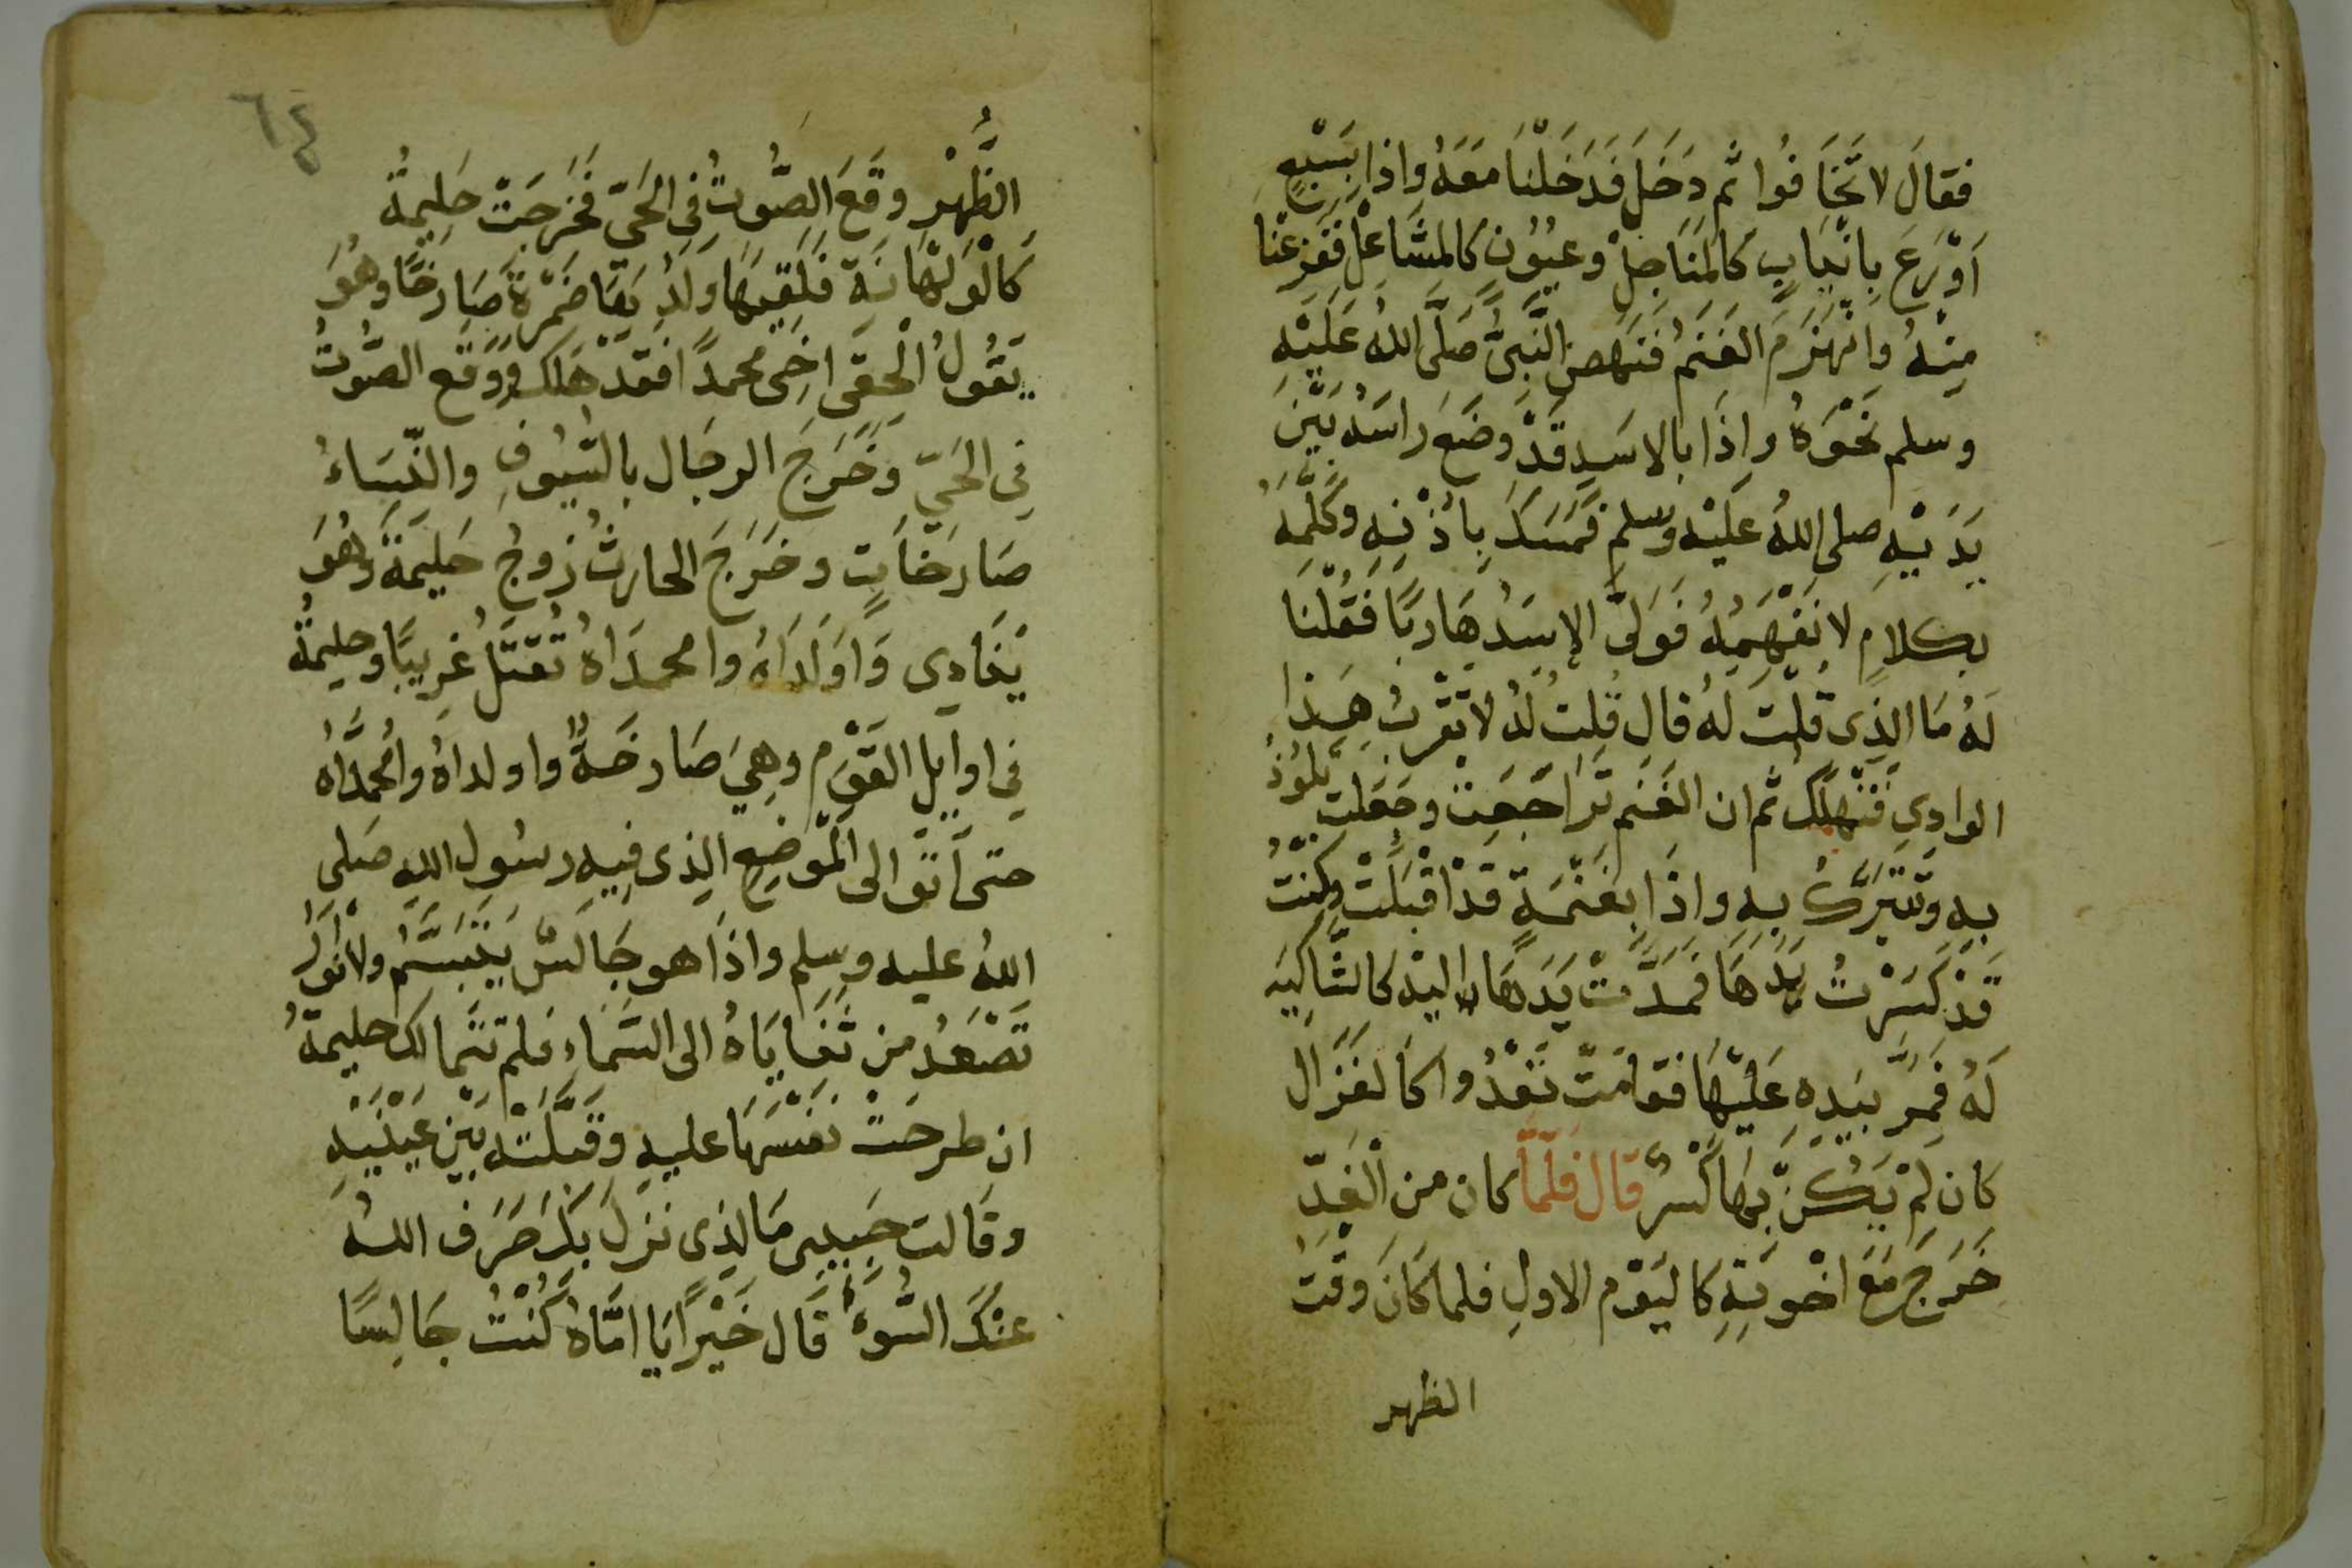 فقالَ لا تَخَافُوا ثم دَخَلَ فَدَخَلْنَا مَعَهُ واذا بِسَبْعٍ
اَوْرَعَ بِانْيَابٍ كَالمَنَاجِلْ وعيُوُن كالمشَاعلْ ففَزِعْنا
مِنْهُ وانْهَزَمَ الغَنَمُ فَنَهَض النَّبِىُّ صَلَّى اللهُ عَلَيْهِ
وسلم نَحْوَهُ واِذَا بالاسَدِ قَدْ وضَعَ رَاسَهُ بَيْنَ
يَدَيْهِ صلى اللهُ عَلَيْهِ وسلم فمَسَكَ بِاُذْنِهِ وكَلَّمَهُ
بكلامٍ لا نَفْهَمُهُ فَوَلىَّ الاسَدُ هَارِبًا فَقُلْنَا
لَهُ مَا الذِى قُلْتَ لهُ قال قُلتُ لَهُ لا تَقْرَبُ هَذا
الوادِي فَتَهلَك ثم ان الغَنَم تَرَاجَعِت وجَعَلت تَلُوذُ
بهِ وتَتَبَرَّكُ بهِ واذَا بغَنَمَةٍ قَدْ اقْبَلَتْ وكنْتُ
قَدْ كَسَرْتُ يَدَهَا فَمَدَّتْ يَدَهَا اليْه كالشَّاكِيَه
لَهُ فَمَرَّ بيَدِهِ عَليْهَا فقامَتْ تَعْدُوا كالغَزَال
كان لَمْ يَكُنْ بِهَا كَسْرٌ قال فلمَّا كان من الْغَدِّ
خَرَجَ مَعَ اخْوتِهِ كاليَوْم الاولِ فلما كَانَ وقتَ
الظهر
٦٤
الظُّهْرِ وقَعَ الصَّوتُ فِى الحَىّ فَخرجَتْ حَلِيمَةُ
كَالْوَلْهَانَةِ فَلَقِيَهَا ولَدُهَا ضَمْرَةُ صَارخًا وهُوَ
يَقُولُ الْحقِى اخِى محمدًا فَقَدْ هَلَك ووَقَع الصَّوتُ
فِى الحَىّ وخَرَجَ الرجَال بالسّيُوفِ والنّسَاءُ
صَارخَاتٍ وخَرَجَ الحارثُ زوجُ حَليمَةَ وهُوَ
يُنَادِى وَاوَلَدَاهُ وامحمدَاهُ تُقتَلُ غَرِيبًا وحليمَةُ
فِى اوايل القَوْم وهِىَ صَارخَةٌ واولداهُ وامُحمَّدَاهُ
حتى اَتَوْا الى المَوضِعِ الذِى فِيهِ رسُولِ اللهِ صَلى
اللهُ عليه وسلم واذَا هو جَالسٌ يَتَبَسَّمُ والاَنْوَار
تَصْعَدُ مِنْ ثَنَايَاهُ الى السَّمَاءِ فلم تتَمالك حليمَةُ
ان طرحَتْ نَفْسَهَا عليهِ وقبَّلَتْهُ بَيْنَ عَيْنَيْهِ
وقَالت حَبِيبِى مَا الذِى نزلَ بكَ صَرَف اللهُ
عنْكَ السُّوءَ قَال خَيْرًا يَا امَّاهُ كُنْتُ جَالِسًا